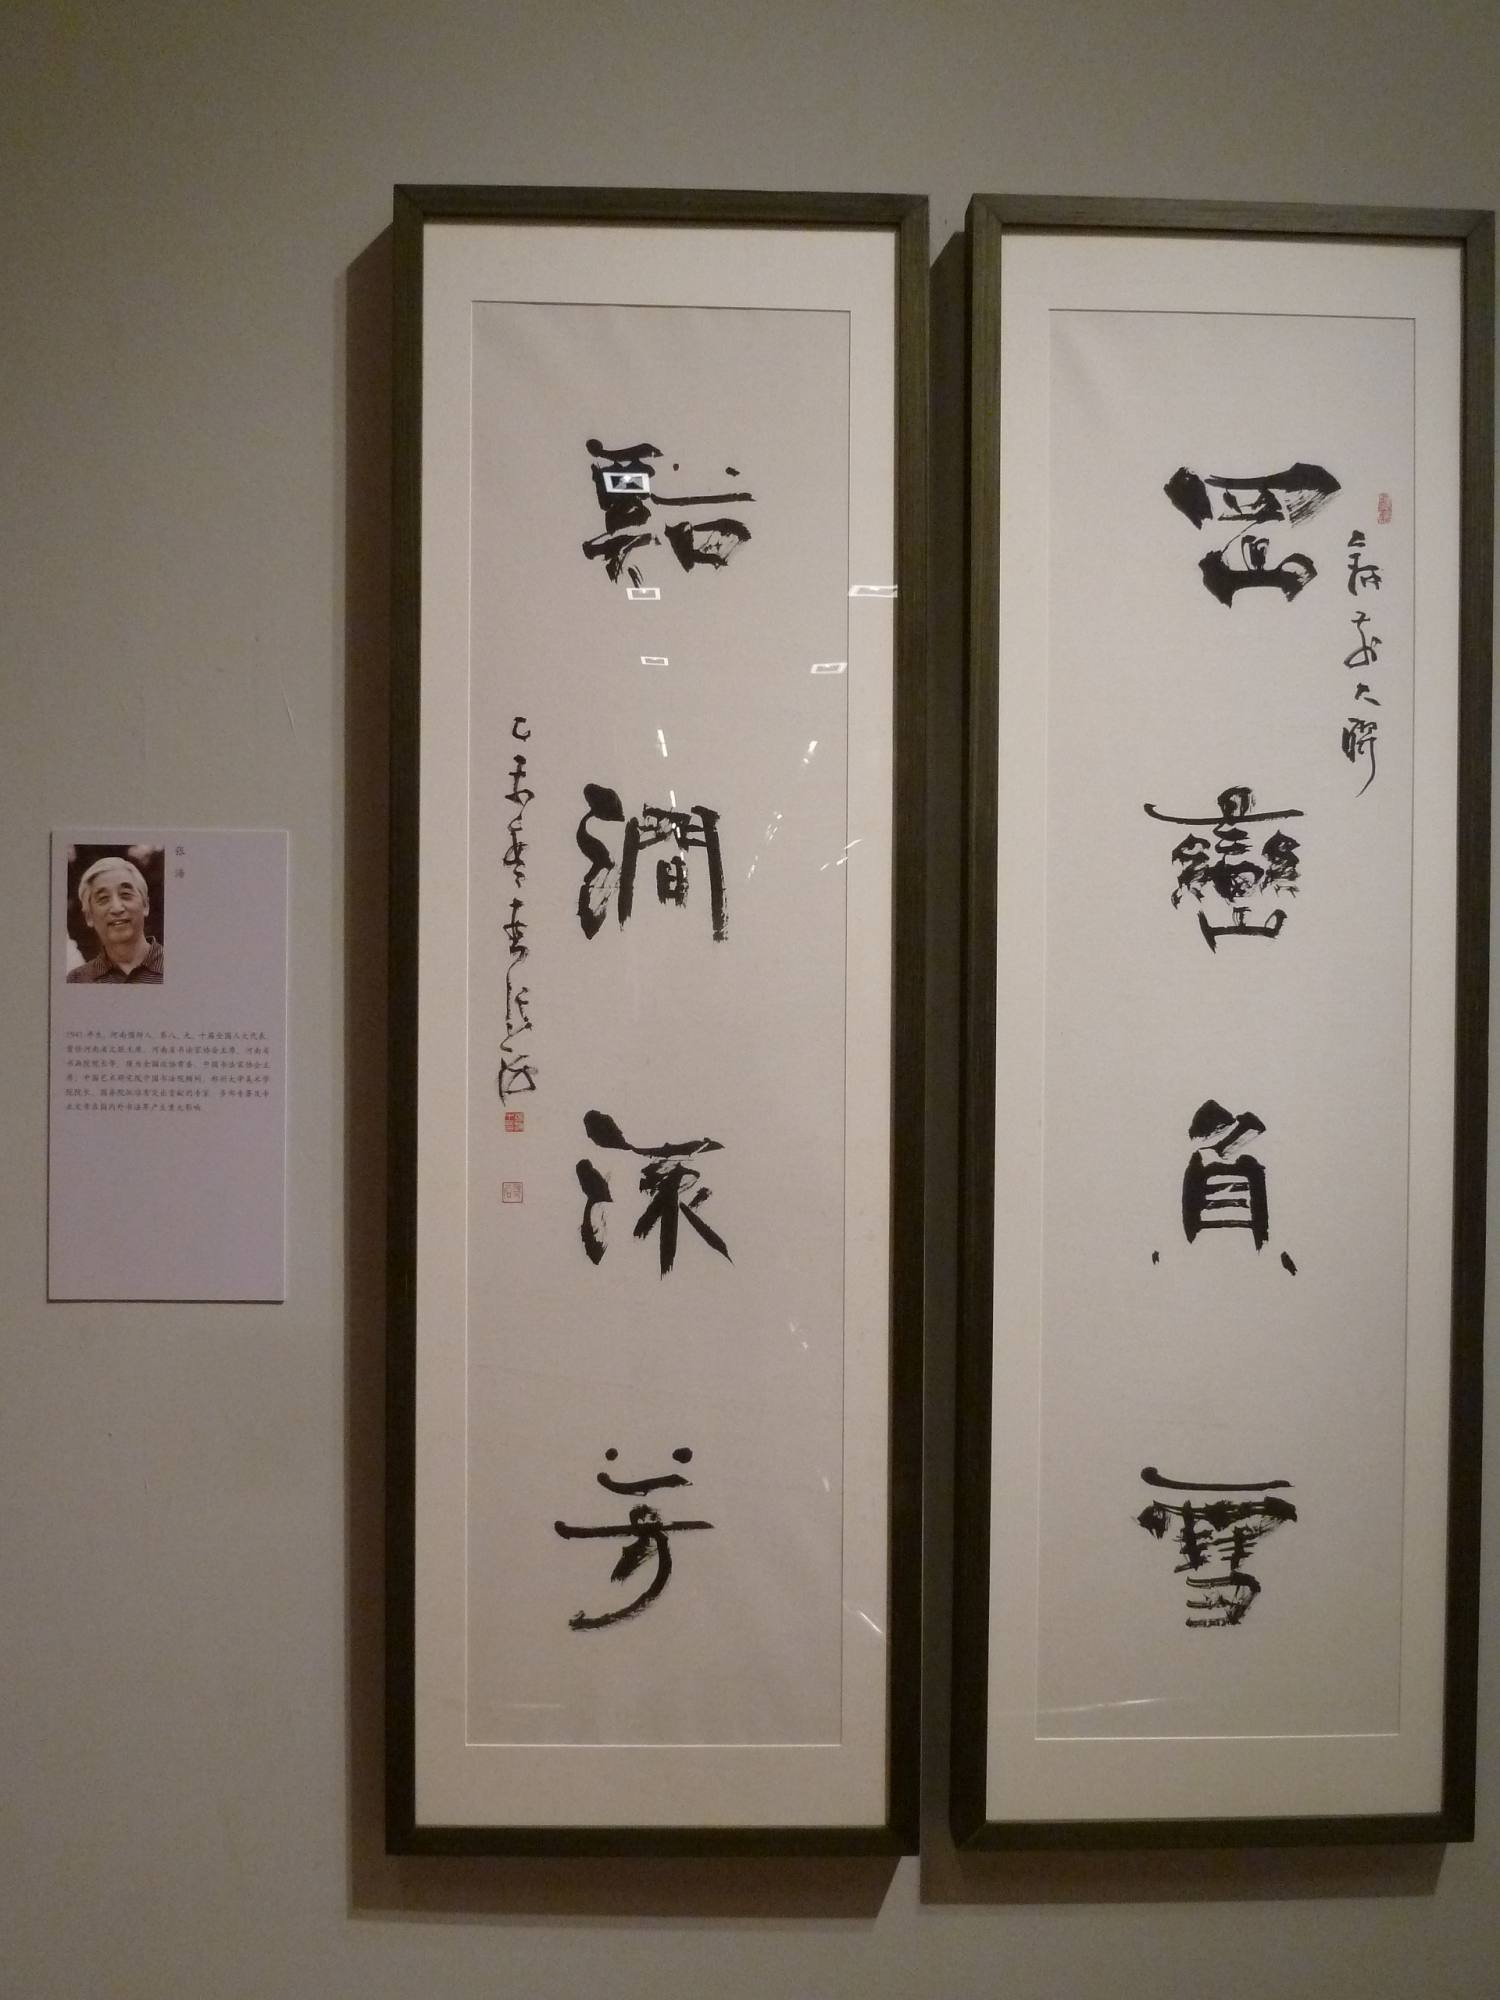 岡巒負雪
大聯
谿澗芳
張海
张海
1941 年生，河南偃师人。第八、九、十届全国人大代表，
曾任河南省文联主席、河南省书法家协会主席、河南省
书画院院长等。现为全国政协常委、中国书法家协会主
席；中国艺术研究院中国书法院顾问，郑州大学美术学
院院长，国务院批准有突出贡献的专家。多部专著及
在国内外书法界产生重大影响。